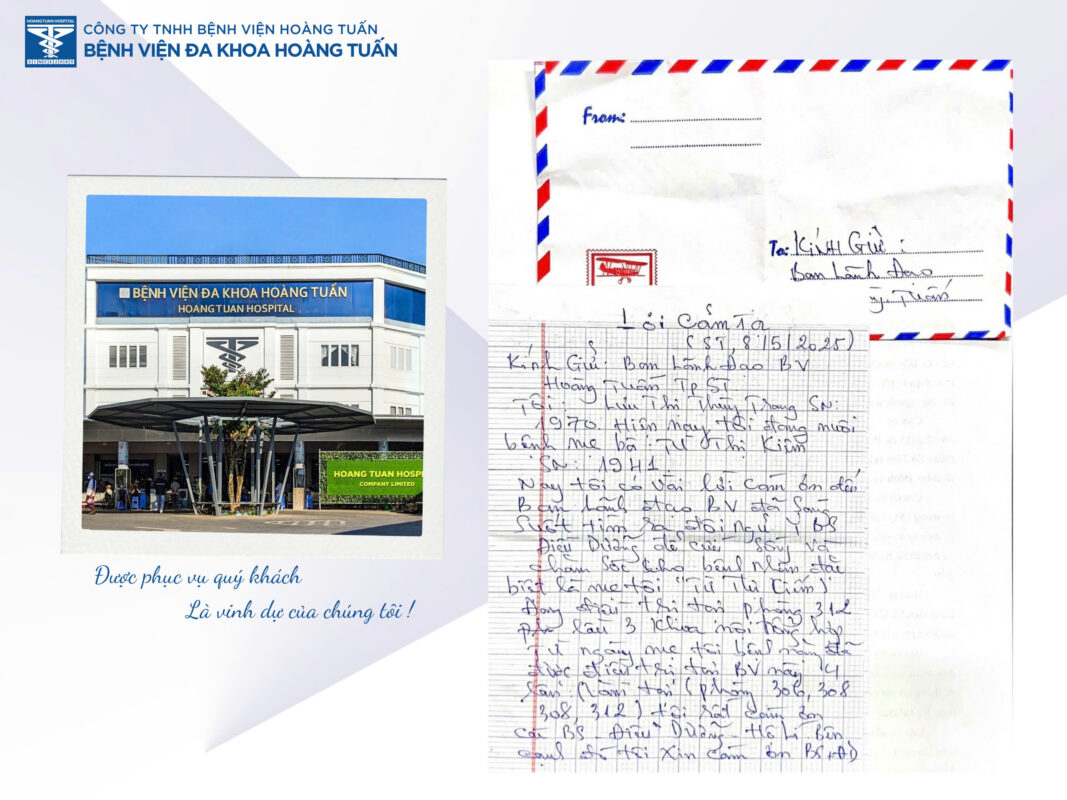 HOANGTUAN HOSPITAL
SINCE 2009
CÔNG TY TNHH BỆNH VIỆN HOÀNG TUẤN
BỆNH VIỆN ĐA KHOA HOÀNG TUẤN
BỆNH VIỆN ĐA KHOA HOÀNG TUẤN
HOANG TUAN HOSPITAL
HOANG TUAN HOSPI
COMPANY LIMITED
Được phục vụ quý khách
Là vinh dự của chúng tôi !
From:
To: Kính Gửi :
Ban Lãnh Đạo
Tuấn
Lời Cảm Tạ
(ST, 8/5/2025)
Kính Gửi: Ban Lãnh Đạo BV
Hoàng Tuấn Tp ST
Tôi : Lưu Thị Thùy Trang SN:
1970. Hiện nay tôi đang nuôi
bệnh mẹ bà : Từ Thị Kiếm
SN: 1941
Nay tôi có vài lời cảm ơn đến
Ban Lãnh đạo BV đã sáng
suốt tìm ra đội ngũ Y BS
Điều Dưỡng để cứu sống và
chăm sóc cho bệnh nhân đặc
biệt là mẹ tôi "Từ Thị Kiếm"
Đang điều trị tại phòng 312
lầu 3 Khoa nội tổng hợp
Từ ngày mẹ tôi bệnh nặng đã
được điều trị tại BV này 4
lần. (Nằm tại (phòng 306, 308
308, 312) tôi rất cảm ơn
các BS - Điều Dưỡng - Hộ Lí. Bên
cạnh đó tôi xin cảm ơn BS + ĐD